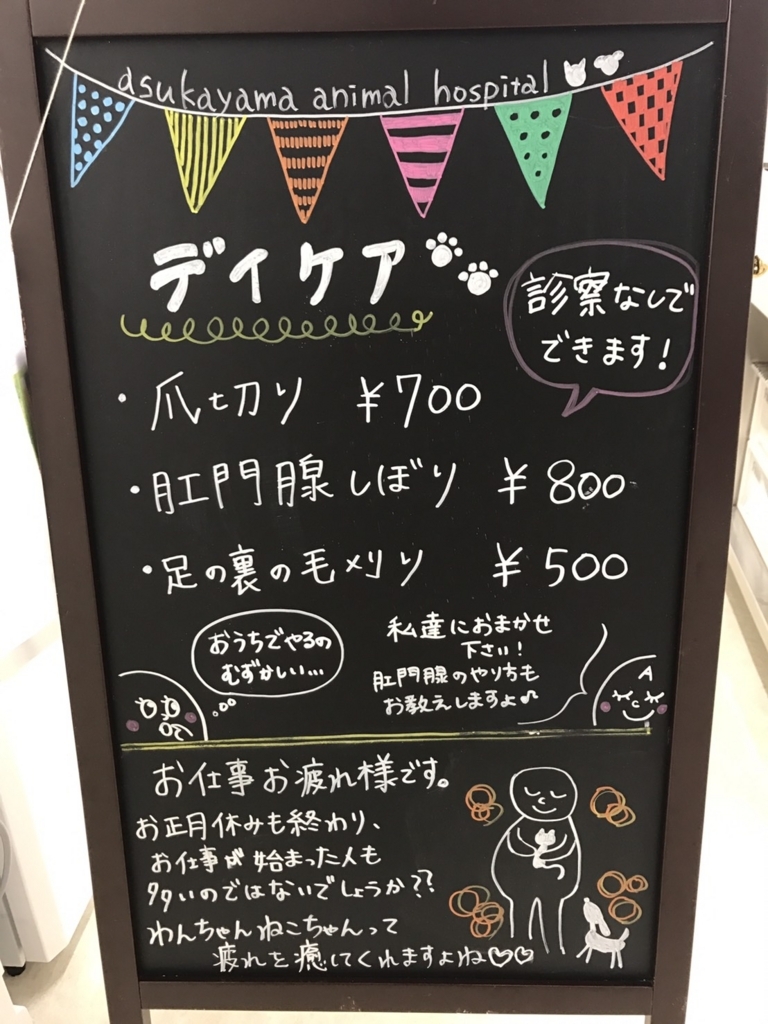 asukayama animal hospital
デイケア
診察なしで
できます!
・爪切り ¥700
・肛門腺しぼり ¥800
・足の裏の毛メリリ ¥500
おうちでやるの
むずかしい…
私達におまかせ
下さい!
肛門腺のやり方も
お教えしますよ♫
A
お仕事お疲れ様です。
お正月休みも終わり、
お仕事が始まった人も
多いのではないでしょうか??
わんちゃんねこちゃんって
疲れを癒してくれますよね♡♡